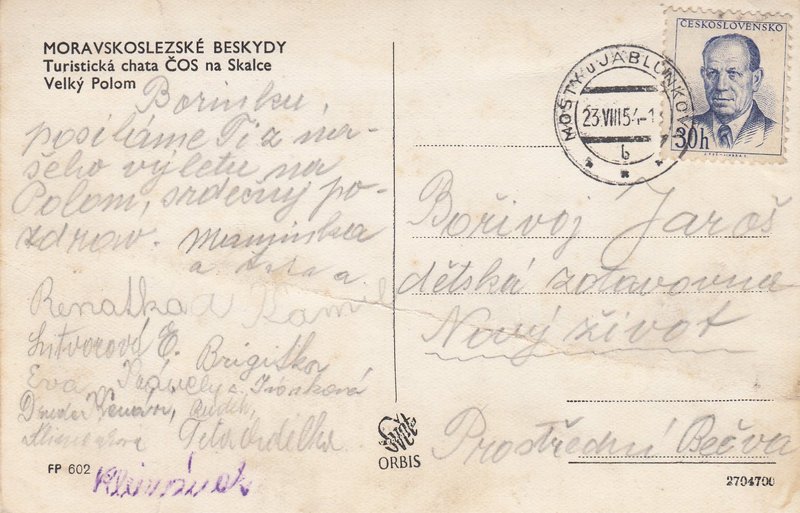 MORAVSKOSLEZSKÉ BESKYDY
Turistická chata ČOS na Skalce
Velký Polom
Borinku,
posíláme Ti z na-
šeho výletu na
Polom, srdečný po-
zdrav. Maminka
a
Renatka a Kamil
E. Brigitka
Eva
Teta
FP 602
ČESKOSLOVENSKO
30h
MOSTY u JABLUNKOVA
23.VIII.54-1
b
Bořivoj Jaroš
dětská zotavovna
Nový život
Prostřední Bečva
Svět
ORBIS
2704700